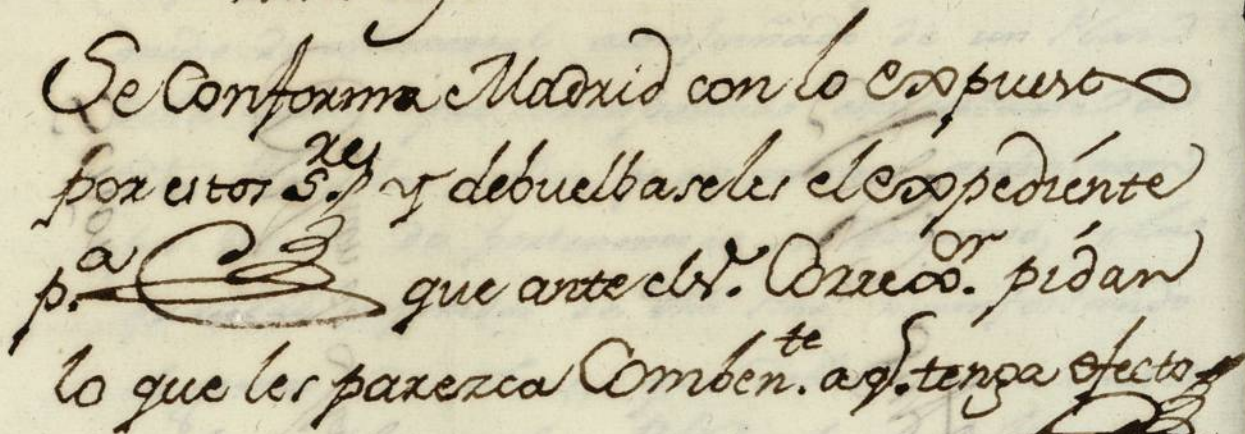 Se Conforma Madrid con lo expuesto
por estos S.res y debuelbaseles el expediénte
p.a que ante el s.r Correx.or pidan
lo que les parezca Comben.te a q.e tenga efecto